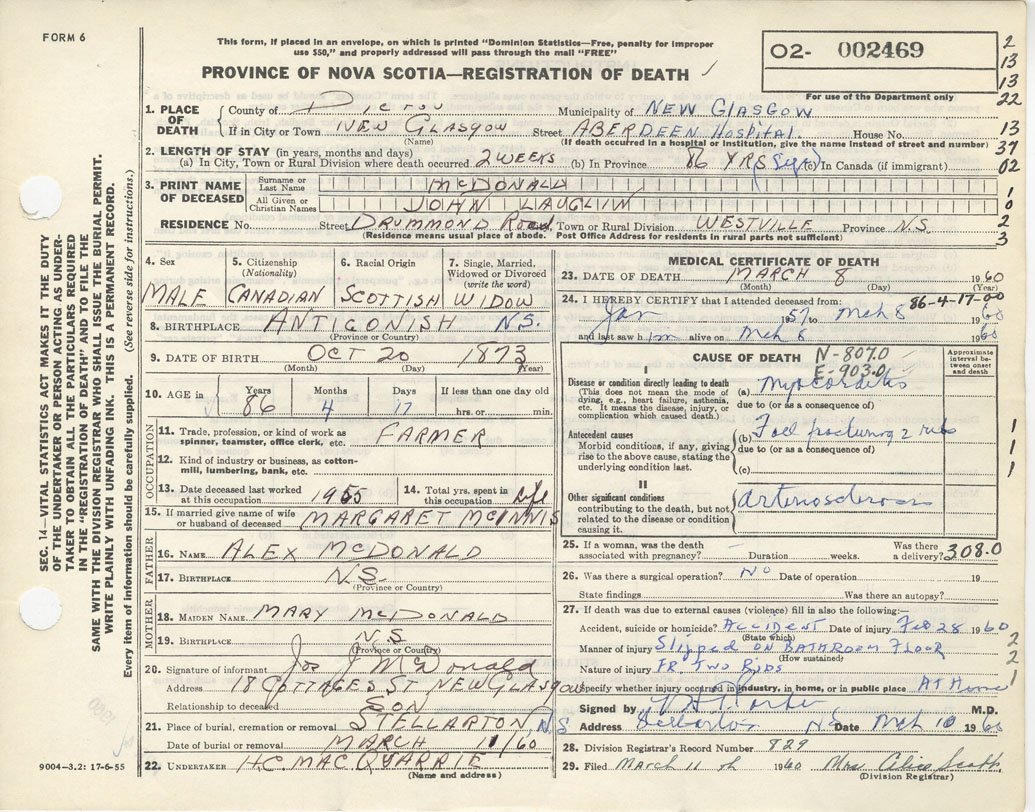 FORM 6
This form, if placed in an envelope, on which is printed "Dominion Statistics—Free, penalty for improper
use $50," and properly addressed will pass through the mail "FREE"
PROVINCE OF NOVA SCOTIA—REGISTRATION OF DEATH
02- 002469
For use of the Department only
2
13
13
22
13
37
02
1
0
2
3
1. PLACE OF DEATH
County of Pictou Municipality of NEW GLASGOW
If in City or Town NEW GLASGOW Street ABERDEEN HOSPITAL. House No.
(Name) (If death occurred in a hospital or institution, give the name instead of street and number)
2. LENGTH OF STAY (in years, months and days)
(a) In City, Town or Rural Division where death occurred 2 WEEKS (b) In Province 86 YRS (c) In Canada (if immigrant)
3. PRINT NAME OF DECEASED
Surname or Last Name MCDONALD
All Given or Christian Names JOHN LAUGLIN
RESIDENCE No. Street DRUMMOND ROAD Town or Rural Division WESTVILLE Province N.S.
(Residence means usual place of abode. Post Office Address for residents in rural parts not sufficient)
4. Sex MALE
5. Citizenship (Nationality) CANADIAN
6. Racial Origin SCOTTISH
7. Single, Married, Widowed or Divorced (write the word) WIDOW
8. BIRTHPLACE ANTIGONISH N.S.
(Province or Country)
9. DATE OF BIRTH OCT 20 1873
(Month) (Day) (Year)
10. AGE in Years 86 Months 4 Days 17 If less than one day old hrs. or min.
OCCUPATION
11. Trade, profession, or kind of work as spinner, teamster, office clerk, etc. FARMER
12. Kind of industry or business, as cotton-mill, lumbering, bank, etc.
13. Date deceased last worked at this occupation 1955
14. Total yrs. spent in this occupation Life
15. If married give name of wife or husband of deceased MARGARET MCINNIS
FATHER
16. NAME ALEX MCDONALD
17. BIRTHPLACE N.S.
(Province or Country)
MOTHER
18. MAIDEN NAME MARY MCDONALD
19. BIRTHPLACE N.S
(Province or Country)
20. Signature of informant Jos J McDonald
Address 18 COTTAGES ST NEW GLASGOW
Relationship to deceased SON
21. Place of burial, cremation or removal STELLARTON, N.S
Date of burial or removal MARCH 11/60
22. UNDERTAKER H.C. MACQUARRIE
(Name and address)
MEDICAL CERTIFICATE OF DEATH
23. DATE OF DEATH MARCH 8 1960
(Month) (Day) (Year)
86-4-17-00
24. I HEREBY CERTIFY that I attended deceased from:
Jan 1957 to Mch 8 1960
and last saw him alive on Mch 8 1960
CAUSE OF DEATH
N-807.0
E-903.0
Approximate interval between onset and death
I
Disease or condition directly leading to death
(This does not mean the mode of dying, e.g., heart failure, asthenia, etc. It means the disease, injury, or complication which caused death.)
(a) Myocarditis
due to (or as a consequence of)
Antecedent causes
Morbid conditions, if any, giving rise to the above cause, stating the underlying condition last.
(b) Fall fracturing 2 ribs
due to (or as a consequence of)
(c)
1
1
1
II
Other significant conditions
contributing to the death, but not related to the disease or condition causing it.
arteriosclerosis
25. If a woman, was the death associated with pregnancy? Duration weeks. Was there a delivery?
308.0
26. Was there a surgical operation? NO Date of operation 19
State findings Was there an autopsy?
27. If death was due to external causes (violence) fill in also the following:—
Accident, suicide or homicide? ACCIDENT Date of injury Feb 28 1960
(State which)
Manner of injury Slipped ON BATHROOM FLOOR
(How sustained)
Nature of injury FR. TWO RIBS
Specify whether injury occurred in industry, in home, or in public place AT Home
2
2
1
Signed by M.D.
Address N.S Date Mch 10 1960
28. Division Registrar's Record Number 829
29. Filed March 11 th 1960 Mrs Alice Scott
(Division Registrar)
SEC. 14—VITAL STATISTICS ACT MAKES IT THE DUTY
OF THE UNDERTAKER OR PERSON ACTING AS UNDER-
TAKER TO OBTAIN ALL THE PARTICULARS REQUIRED
IN THE "REGISTRATION OF DEATH" AND TO FILE THE
SAME WITH THE DIVISION REGISTRAR WHO SHALL ISSUE THE BURIAL PERMIT.
WRITE PLAINLY WITH UNFADING INK. THIS IS A PERMANENT RECORD.
Every item of information should be carefully supplied. (See reverse side for instructions.)
9004—3.2: 17-6-55